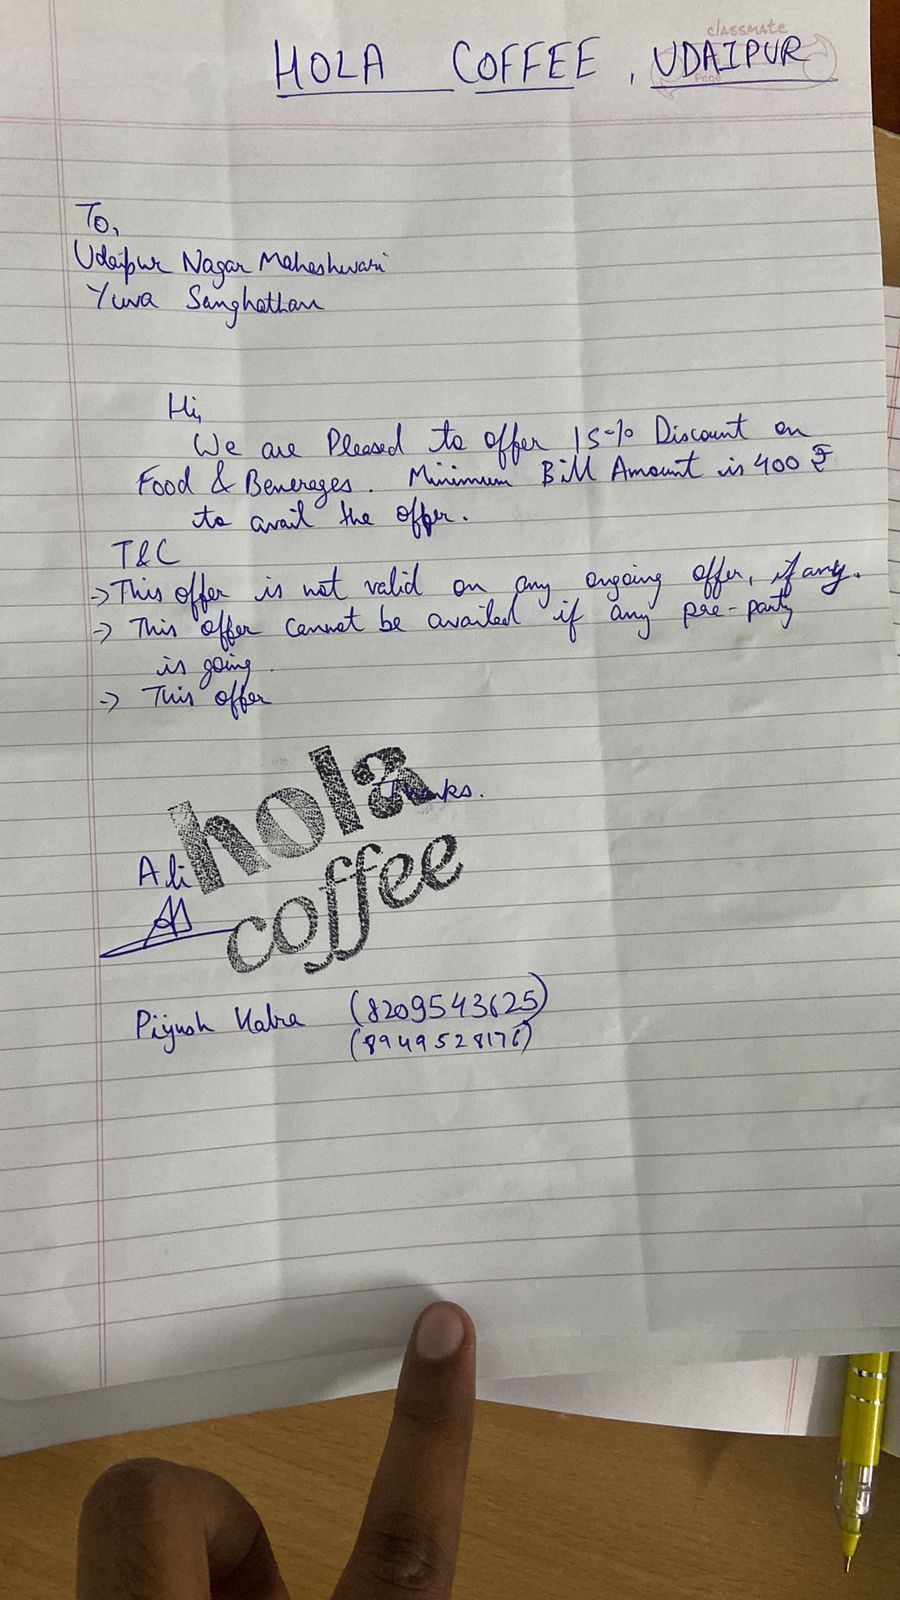 classmate
Page
HOLA COFFEE, UDAIPUR
To,
Udaipur Nagar Maheshwari
Yuva Sanghathan
Hi,
We are Pleased to offer 15% Discount on
Food & Benereges. Minimum Bill Amount is 400 ₹
to avail the offer.
T&C
→ This offer is not valid on any ongoing offer, if any.
→ This offer cannot be availed if any pre-party
is going.
→ This offer
Thanks.
hola
coffee
Ali
Piyush Kabra (8209543625)
(8949528176)